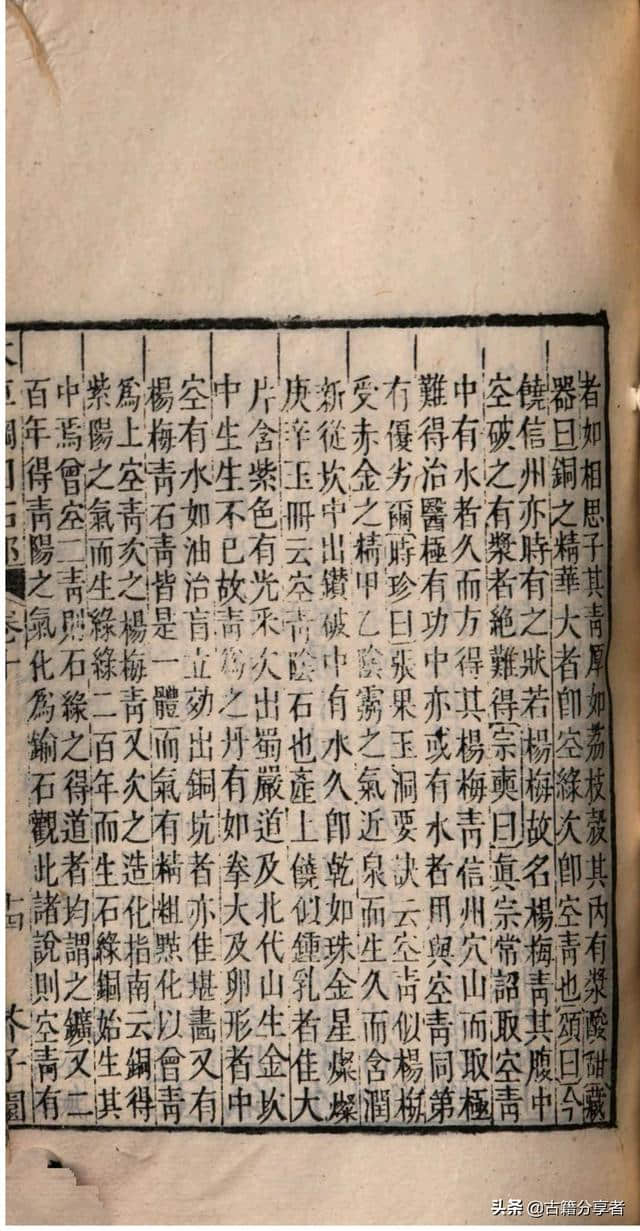 者如相思子其青厚如荔枝殼其內有漿酸甜藏
器曰銅之精華大者卽空綠次卽空青也頌曰今
饒信州亦時有之狀若楊梅故名楊梅青其腹中
空破之有漿者絕難得宗奭曰眞宗常詔取空青
中有水者久而方得其楊梅青信州穴山而取極
難得治醫極有功中亦或有水者用與空青同第
有優劣爾時珍曰張果玉洞要訣云空青似楊梅
受赤金之精甲乙陰霧之氣近泉而生久而含潤
新從坎中出鑽破中有水久卽乾如珠金星燦燦
庚辛玉冊云空青陰石也產上饒似鍾乳者佳大
片含紫色有光采次出蜀嚴道及北代山生金坎
中生生不已故青爲之丹有如拳大及卵形者中
空有水如油治盲立効出銅坑者亦佳堪畵又有
楊梅青石青皆是一體而氣有精粗點化以曾青
爲上空青次之楊梅青又次之造化指南云銅得
紫陽之氣而生綠綠二百年而生石綠銅始生其
中焉曾空二青則石綠之得道者均謂之鑛又二
百年得青陽之氣化爲鍮石觀此諸說則空青有
草綱目石部 卷十 十四 芥子園
头条 @古籍分享者